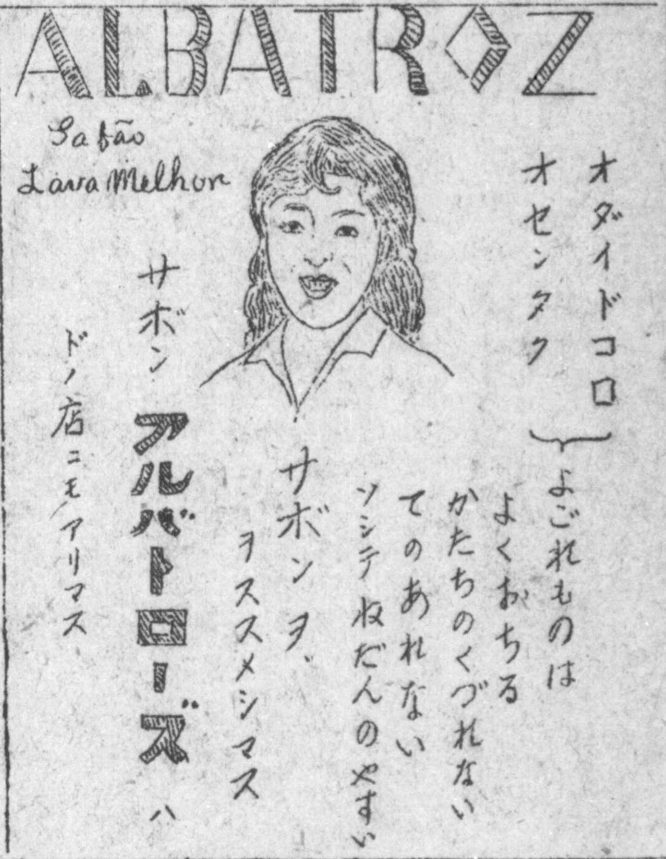 ALBATROZ
Sabão
Lava Melhor
オダイドコロ
オセンタク
よごれものは
よくおちる
かたちのくづれない
てのあれない
ソシテねだんのやすい
サボンヲ、
ヲススメシマス
サボン アルバトローズ ハ
ドノ店ニモアリマス